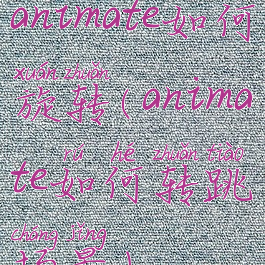 animate如何
xuán zhuǎn
旋转(anima
rú hé zhuǎn tiào
te如何转跳
chǎng jǐng
场景)